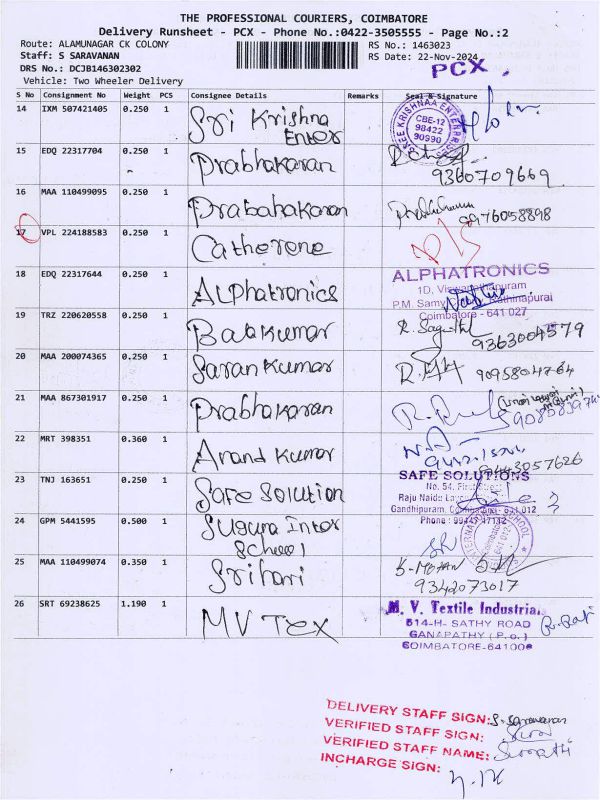 THE PROFESSIONAL COURIERS, COIMBATORE
Delivery Runsheet - PCX - Phone No.:0422-3505555 - Page No.:2
Route: ALAMUNAGAR CK COLONY RS No.: 1463023
Staff: S SARAVANAN RS Date: 22-Nov-2024
DRS No.: DCJB146302302 PCX
Vehicle: Two Wheeler Delivery
S No Consignment No Weight PCS Consignee Details Remarks Seal & Signature
14 IXM 507421405 0.250 1 Sri Krishna Enter
SREE KRISHNAA ENTERPRISES CBE-12 98422 90990
15 EDQ 22317704 0.250 1 Prabhakaran 9360709669
16 MAA 110499095 0.250 1 Prabahakaran 9976058898
17 VPL 224188583 0.250 1 Catherene
18 EDQ 22317644 0.250 1 ALphatronics
ALPHATRONICS
1D,
P.M. Samy
Coimbatore - 641 027
19 TRZ 220620558 0.250 1 Babkumar 9363004579
20 MAA 200074365 0.250 1 Saran Kumar
21 MAA 867301917 0.250 1 Prabhakaran
22 MRT 398351 0.360 1 Anand Kumar
23 TNJ 163651 0.250 1 Safe Solution
SAFE SOLUTIONS
No. 54,
Raju Naidu
Gandhipuram, 012
Phone :
24 GPM 5441595 0.500 1 Suguna Inter School
25 MAA 110499074 0.350 1 Srihari
9342073017
26 SRT 69238625 1.190 1 MV Tex
M. V. Textile Industrial
514-H- SATHY ROAD
GANAPATHY (P.o.)
COIMBATORE-641006
DELIVERY STAFF SIGN: S. Saravanan
VERIFIED STAFF SIGN:
VERIFIED STAFF NAME:
INCHARGE SIGN: